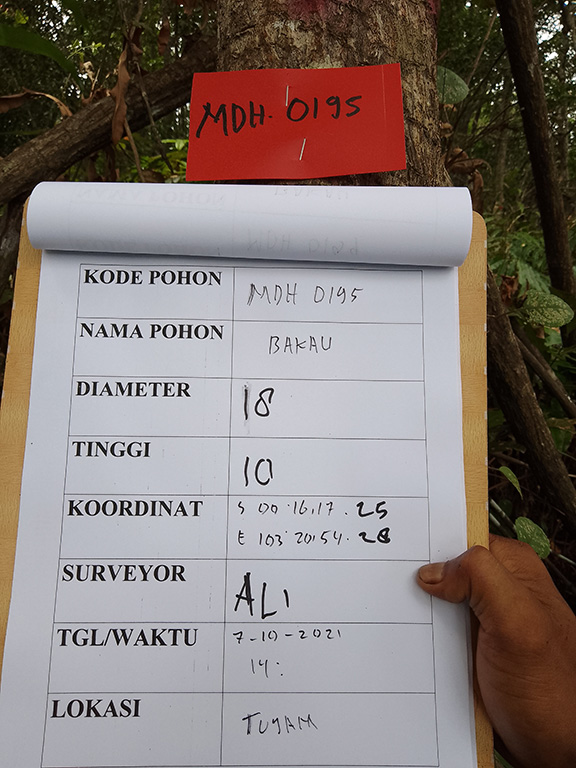 MDH. 0195
KODE POHON MDH 0195
NAMA POHON BAKAU
DIAMETER 18
TINGGI 10
KOORDINAT S 00.16.17.25
E 103.20.54.28
SURVEYOR ALI
TGL/WAKTU 7-10-2021
14:
LOKASI TUYAM